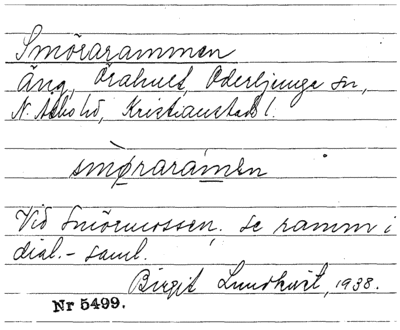 Smörarammen
Äng, Örahult, Oderljunga sn,
N. Åsbo hd, Kristianstads l.
smø̀raramen
Vid Smörmossen. se ramm i
dial.-saml.
Birgit Lundkvist, 1938.
Nr 5499.